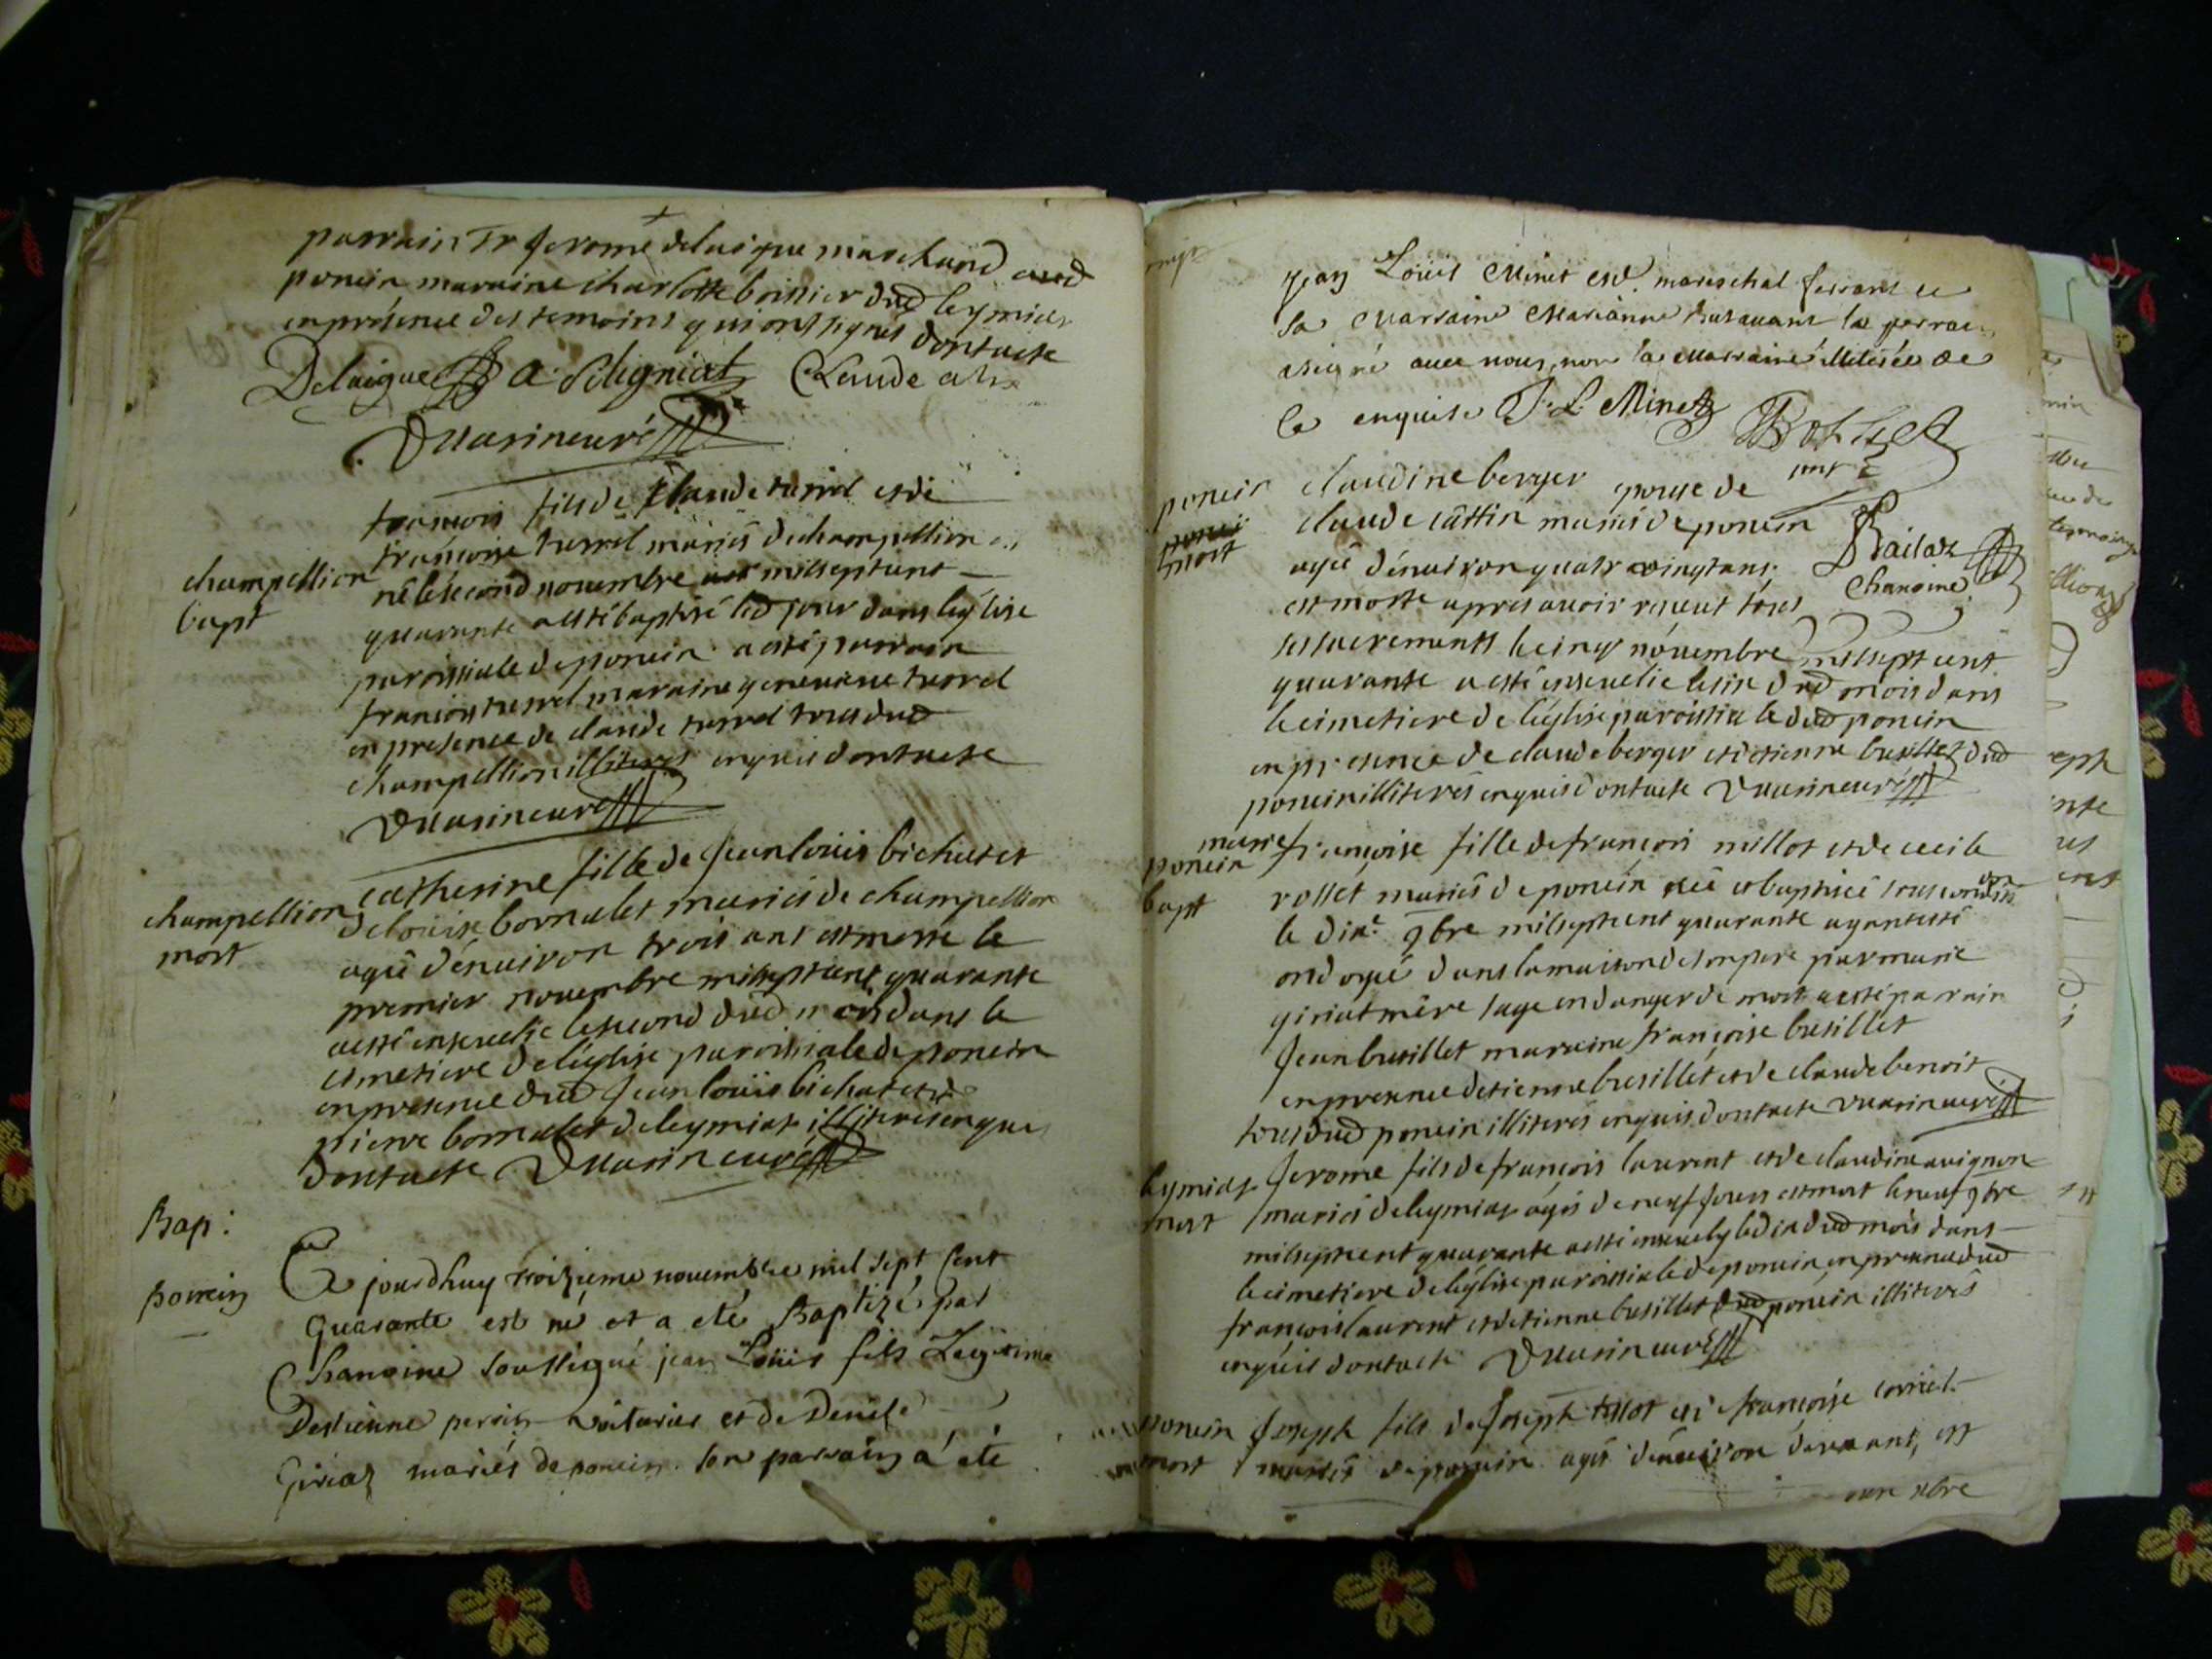 parrain Sr Jerome delaigue marchand aud
poncin maraine charlotte boissier dud leymiat
en présence des temoins qui ont signés dont acte
Delaigue a. Claude
Duarincuré
françois fils de Claude turrel et de
françoise turrel mariés de champellion
champellion
né le second novembre mil sept cent
bapt
quarante a esté baptisé led jour dans leglise
paroissiale de poncin a esté parrain
françois turrel maraine genevieve turrel
en presence de claude turrel tous dud
champellion illiterés enquis dont acte
Duarincuré
catherine fille de Jean louis bichat et
champellion
de louise bornalet mariés de champellion
mort
agée dénuiron trois ans est morte le
premier nouembre mil sept cent quarante
a esté enseuelie le second dud mois dans le
cimetiere de léglise paroissiale de poncin
en presence dud Jean louis bichat et de
pierre bornalet de leymiat illiterés enquis
dont acte Duarincuré
Bap:
Ce jourdhuy troizieme novembre mil sept Cent
poncin
quarante est né et a eté Baptizé par
Chanoine Soussigné jean Loüis fils Legitime
Destienne perrin voiturier et de Denise
Giriat mariés de poncin. son parrain a eté
Jean Loüis Minet mareschal ferrant et
sa Marraine Marianne la parrain
a signé avec nous, non la Marraine illiterée de
ce enquise J. L. Minet
poncin
claudine berger epouse de
claude cattin mariés de poncin
mort
agée dénuiron quatre vingt ans
Chanoine
est morte apres auoir receut tous
ses sacrements le cinq nouembre mil sept cent
quarante a esté enseuelie le six dud mois dans
le cimetiere de léglise paroissiale dud poncin
en presence de claude berger et detienne busillet dud
poncin illiterés enquis dont acte Duarincuré
marie françoise fille de françois millot et de cecile
poncin
rosset mariés de poncin née et baptisée sous condition
bapt
le dixe 9bre mil sept cent quarante ayant esté
ondoyée dans la maison de son pere par marie
giriat mère sage en danger de mort a esté parrain
Jean busillet maraine françoise busillet
en presence detienne busillet et de claude benoit
tous dud poncin illiterés enquis dont acte Duarincuré
leymiat
Jerome fils de françois laurent et de claudine auignon
mort
mariés de leymiat agés de neuf jours est mort le neuf 9bre
mil sept cent quarante a esté enseuely le dix dud mois dans
le cimetiere de léglise paroissiale de poncin en presence dud
françois laurent et detienne busillet dud poncin illiterés
enquis dont acte Duarincuré
poncin
Joseph fils de Joseph tissot et de françoise
mort
mariés de poncin agé dénuiron deux ans, est